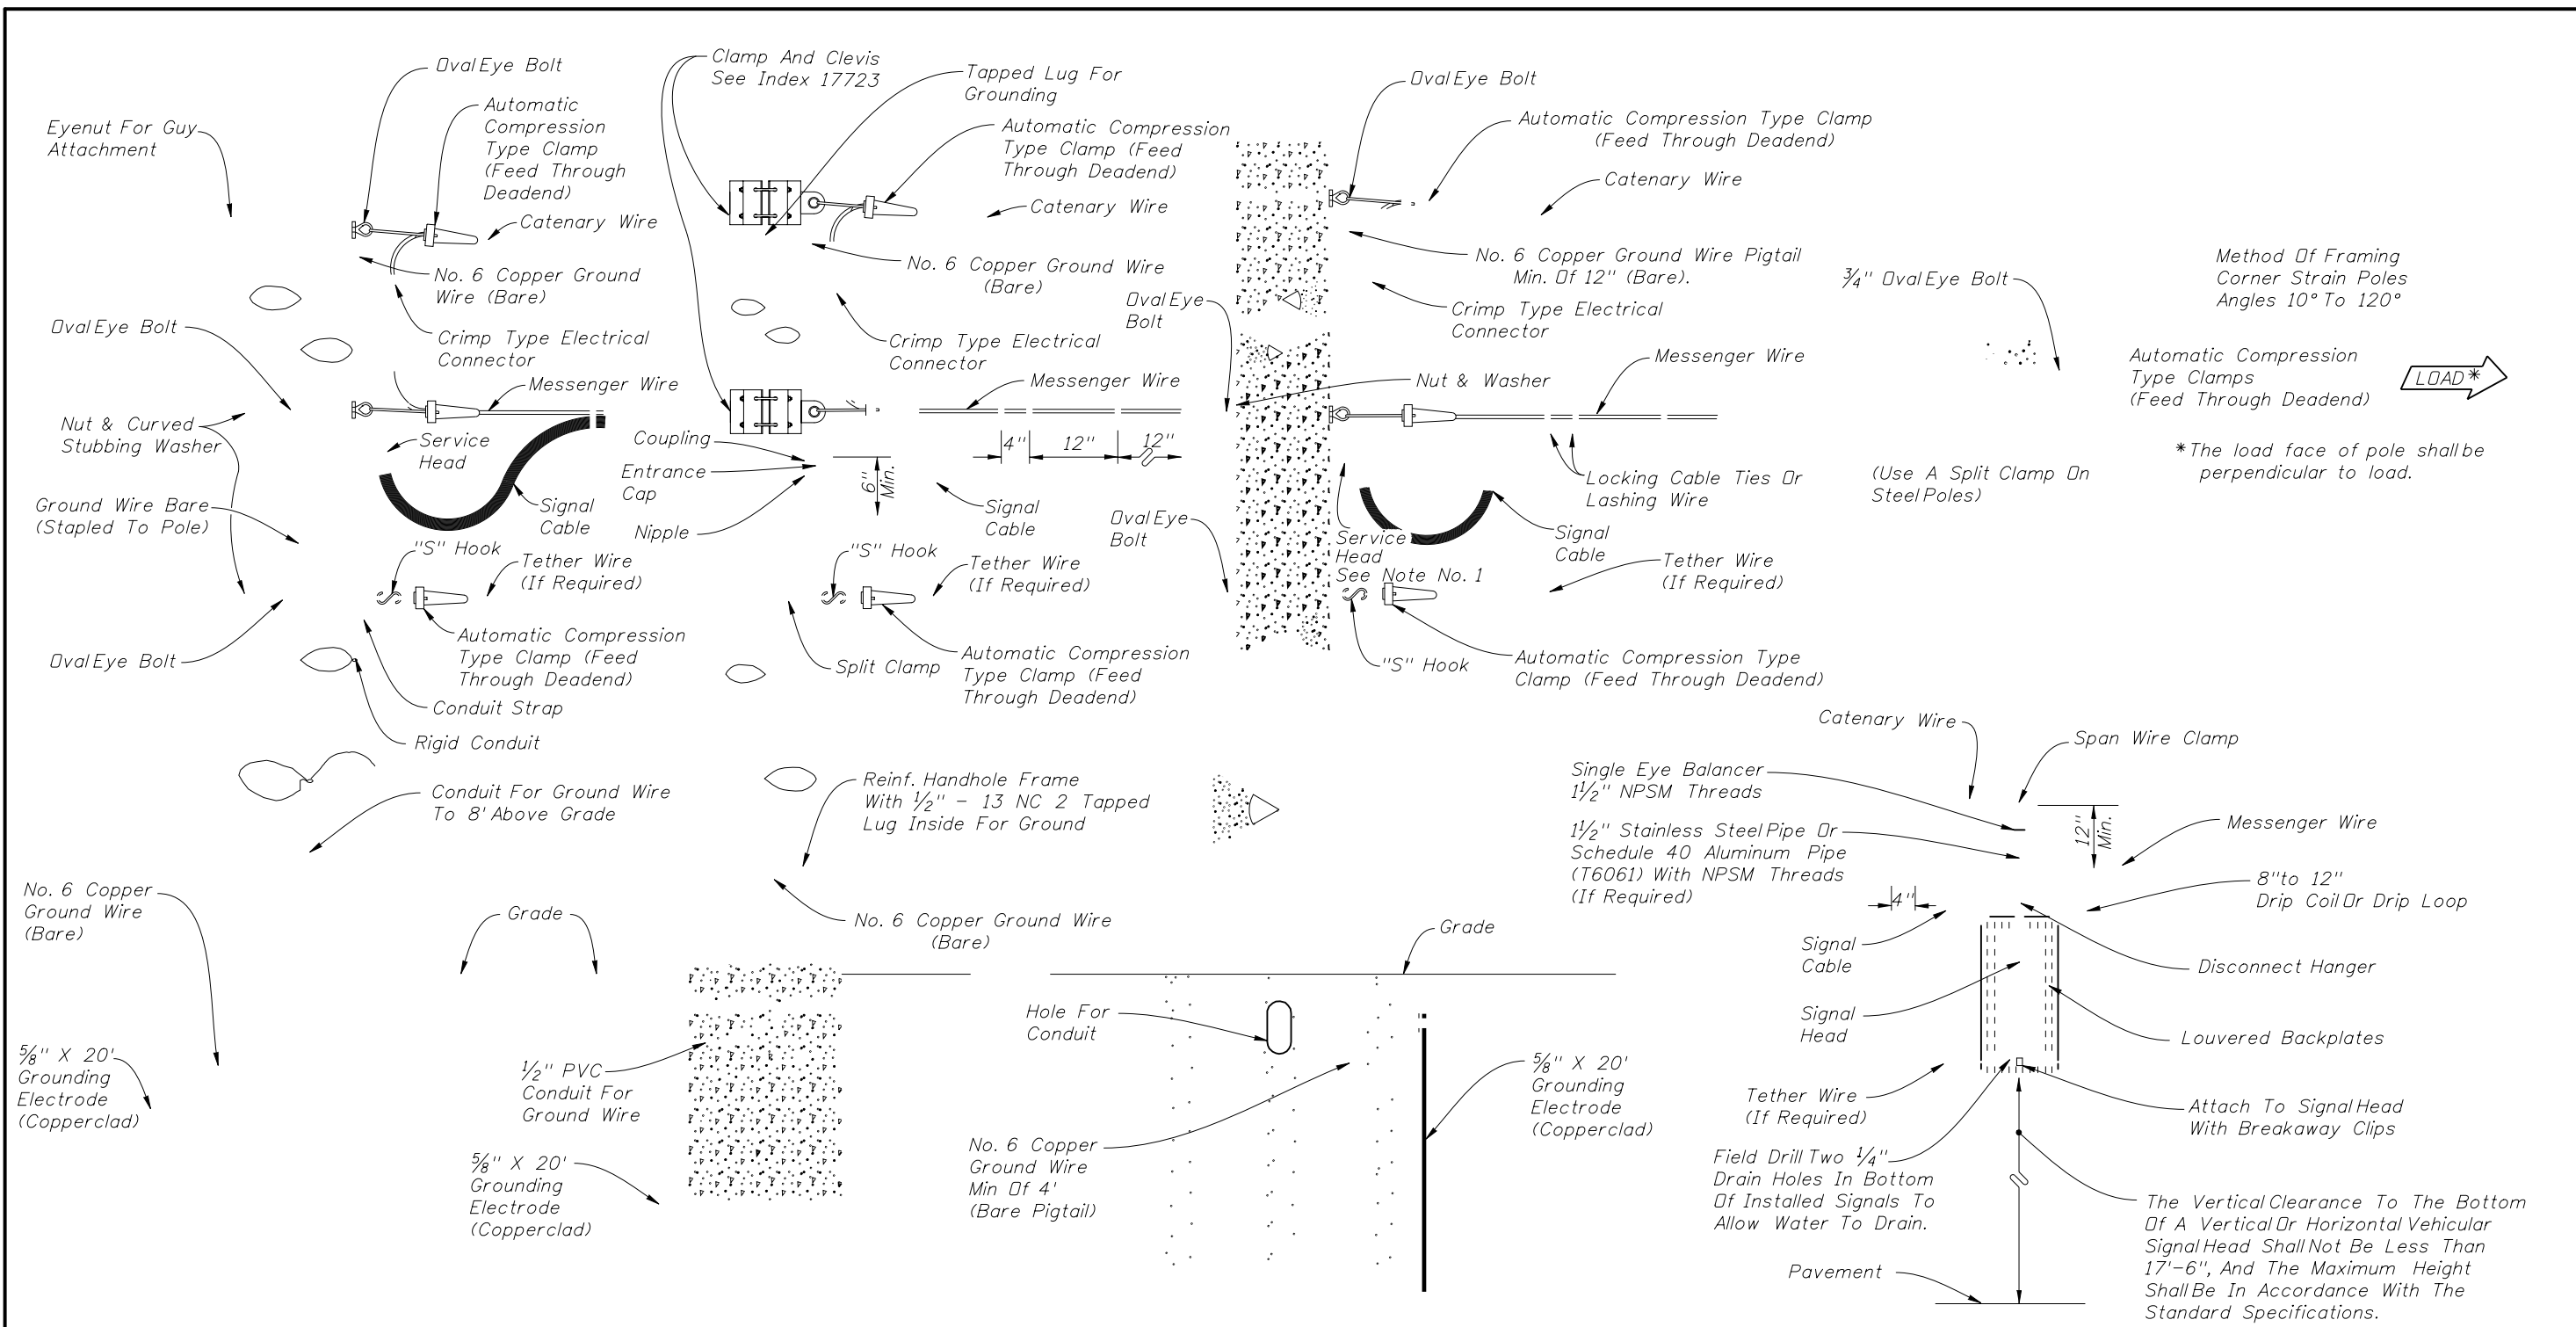 Oval Eye Bolt
Eyenut For Guy
Attachment
Automatic
Compression
Type Clamp
(Feed Through
Deadend)
Catenary Wire
No. 6 Copper Ground
Wire (Bare)
Oval Eye Bolt
Crimp Type Electrical
Connector
Messenger Wire
Nut & Curved
Stubbing Washer
Service
Head
Ground Wire Bare
(Stapled To Pole)
Signal
Cable
"S" Hook
Tether Wire
(If Required)
Oval Eye Bolt
Automatic Compression
Type Clamp (Feed
Through Deadend)
Conduit Strap
Rigid Conduit
Conduit For Ground Wire
To 8' Above Grade
No. 6 Copper
Ground Wire
(Bare)
Grade
5/8" X 20'
Grounding
Electrode
(Copperclad)
Clamp And Clevis
See Index 17723
Tapped Lug For
Grounding
Automatic Compression
Type Clamp (Feed
Through Deadend)
Catenary Wire
No. 6 Copper Ground Wire
(Bare)
Crimp Type Electrical
Connector
Messenger Wire
Coupling
Entrance
Cap
Nipple
6"
Min.
4"
12"
12"
Signal
Cable
"S" Hook
Tether Wire
(If Required)
Split Clamp
Automatic Compression
Type Clamp (Feed
Through Deadend)
Reinf. Handhole Frame
With 1/2" - 13 NC 2 Tapped
Lug Inside For Ground
No. 6 Copper Ground Wire
(Bare)
1/2" PVC
Conduit For
Ground Wire
5/8" X 20'
Grounding
Electrode
(Copperclad)
Oval Eye Bolt
Automatic Compression Type Clamp
(Feed Through Deadend)
Catenary Wire
No. 6 Copper Ground Wire Pigtail
Min. Of 12" (Bare).
Oval Eye
Bolt
Crimp Type Electrical
Connector
Messenger Wire
Nut & Washer
Locking Cable Ties Or
Lashing Wire
Oval Eye
Bolt
Service
Head
See Note No. 1
Signal
Cable
Tether Wire
(If Required)
"S" Hook
Automatic Compression Type
Clamp (Feed Through Deadend)
Grade
Hole For
Conduit
No. 6 Copper
Ground Wire
Min Of 4'
(Bare Pigtail)
5/8" X 20'
Grounding
Electrode
(Copperclad)
Method Of Framing
Corner Strain Poles
Angles 10° To 120°
3/4" Oval Eye Bolt
Automatic Compression
Type Clamps
(Feed Through Deadend)
LOAD*
*The load face of pole shall be
perpendicular to load.
(Use A Split Clamp On
Steel Poles)
Catenary Wire
Span Wire Clamp
Single Eye Balancer
1 1/2" NPSM Threads
12"
Min.
Messenger Wire
1 1/2" Stainless Steel Pipe Or
Schedule 40 Aluminum Pipe
(T6061) With NPSM Threads
(If Required)
4"
8" to 12"
Drip Coil Or Drip Loop
Signal
Cable
Disconnect Hanger
Signal
Head
Louvered Backplates
Tether Wire
(If Required)
Attach To Signal Head
With Breakaway Clips
Field Drill Two 1/4"
Drain Holes In Bottom
Of Installed Signals To
Allow Water To Drain.
The Vertical Clearance To The Bottom
Of A Vertical Or Horizontal Vehicular
Signal Head Shall Not Be Less Than
17'-6", And The Maximum Height
Shall Be In Accordance With The
Standard Specifications.
Pavement